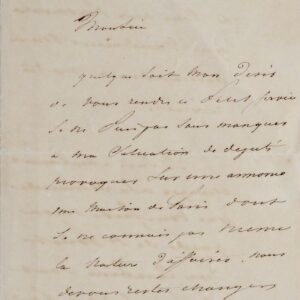 Monsieur
quelque soit mon desir
de vous rendre ce petit service
Je ne puis pas sans manquer
a ma situation de deputé
provoquer sur une annonce
une maison de Paris dont
Je ne connais pas meme
la nature d'affaires. nous
devons rester étrangers